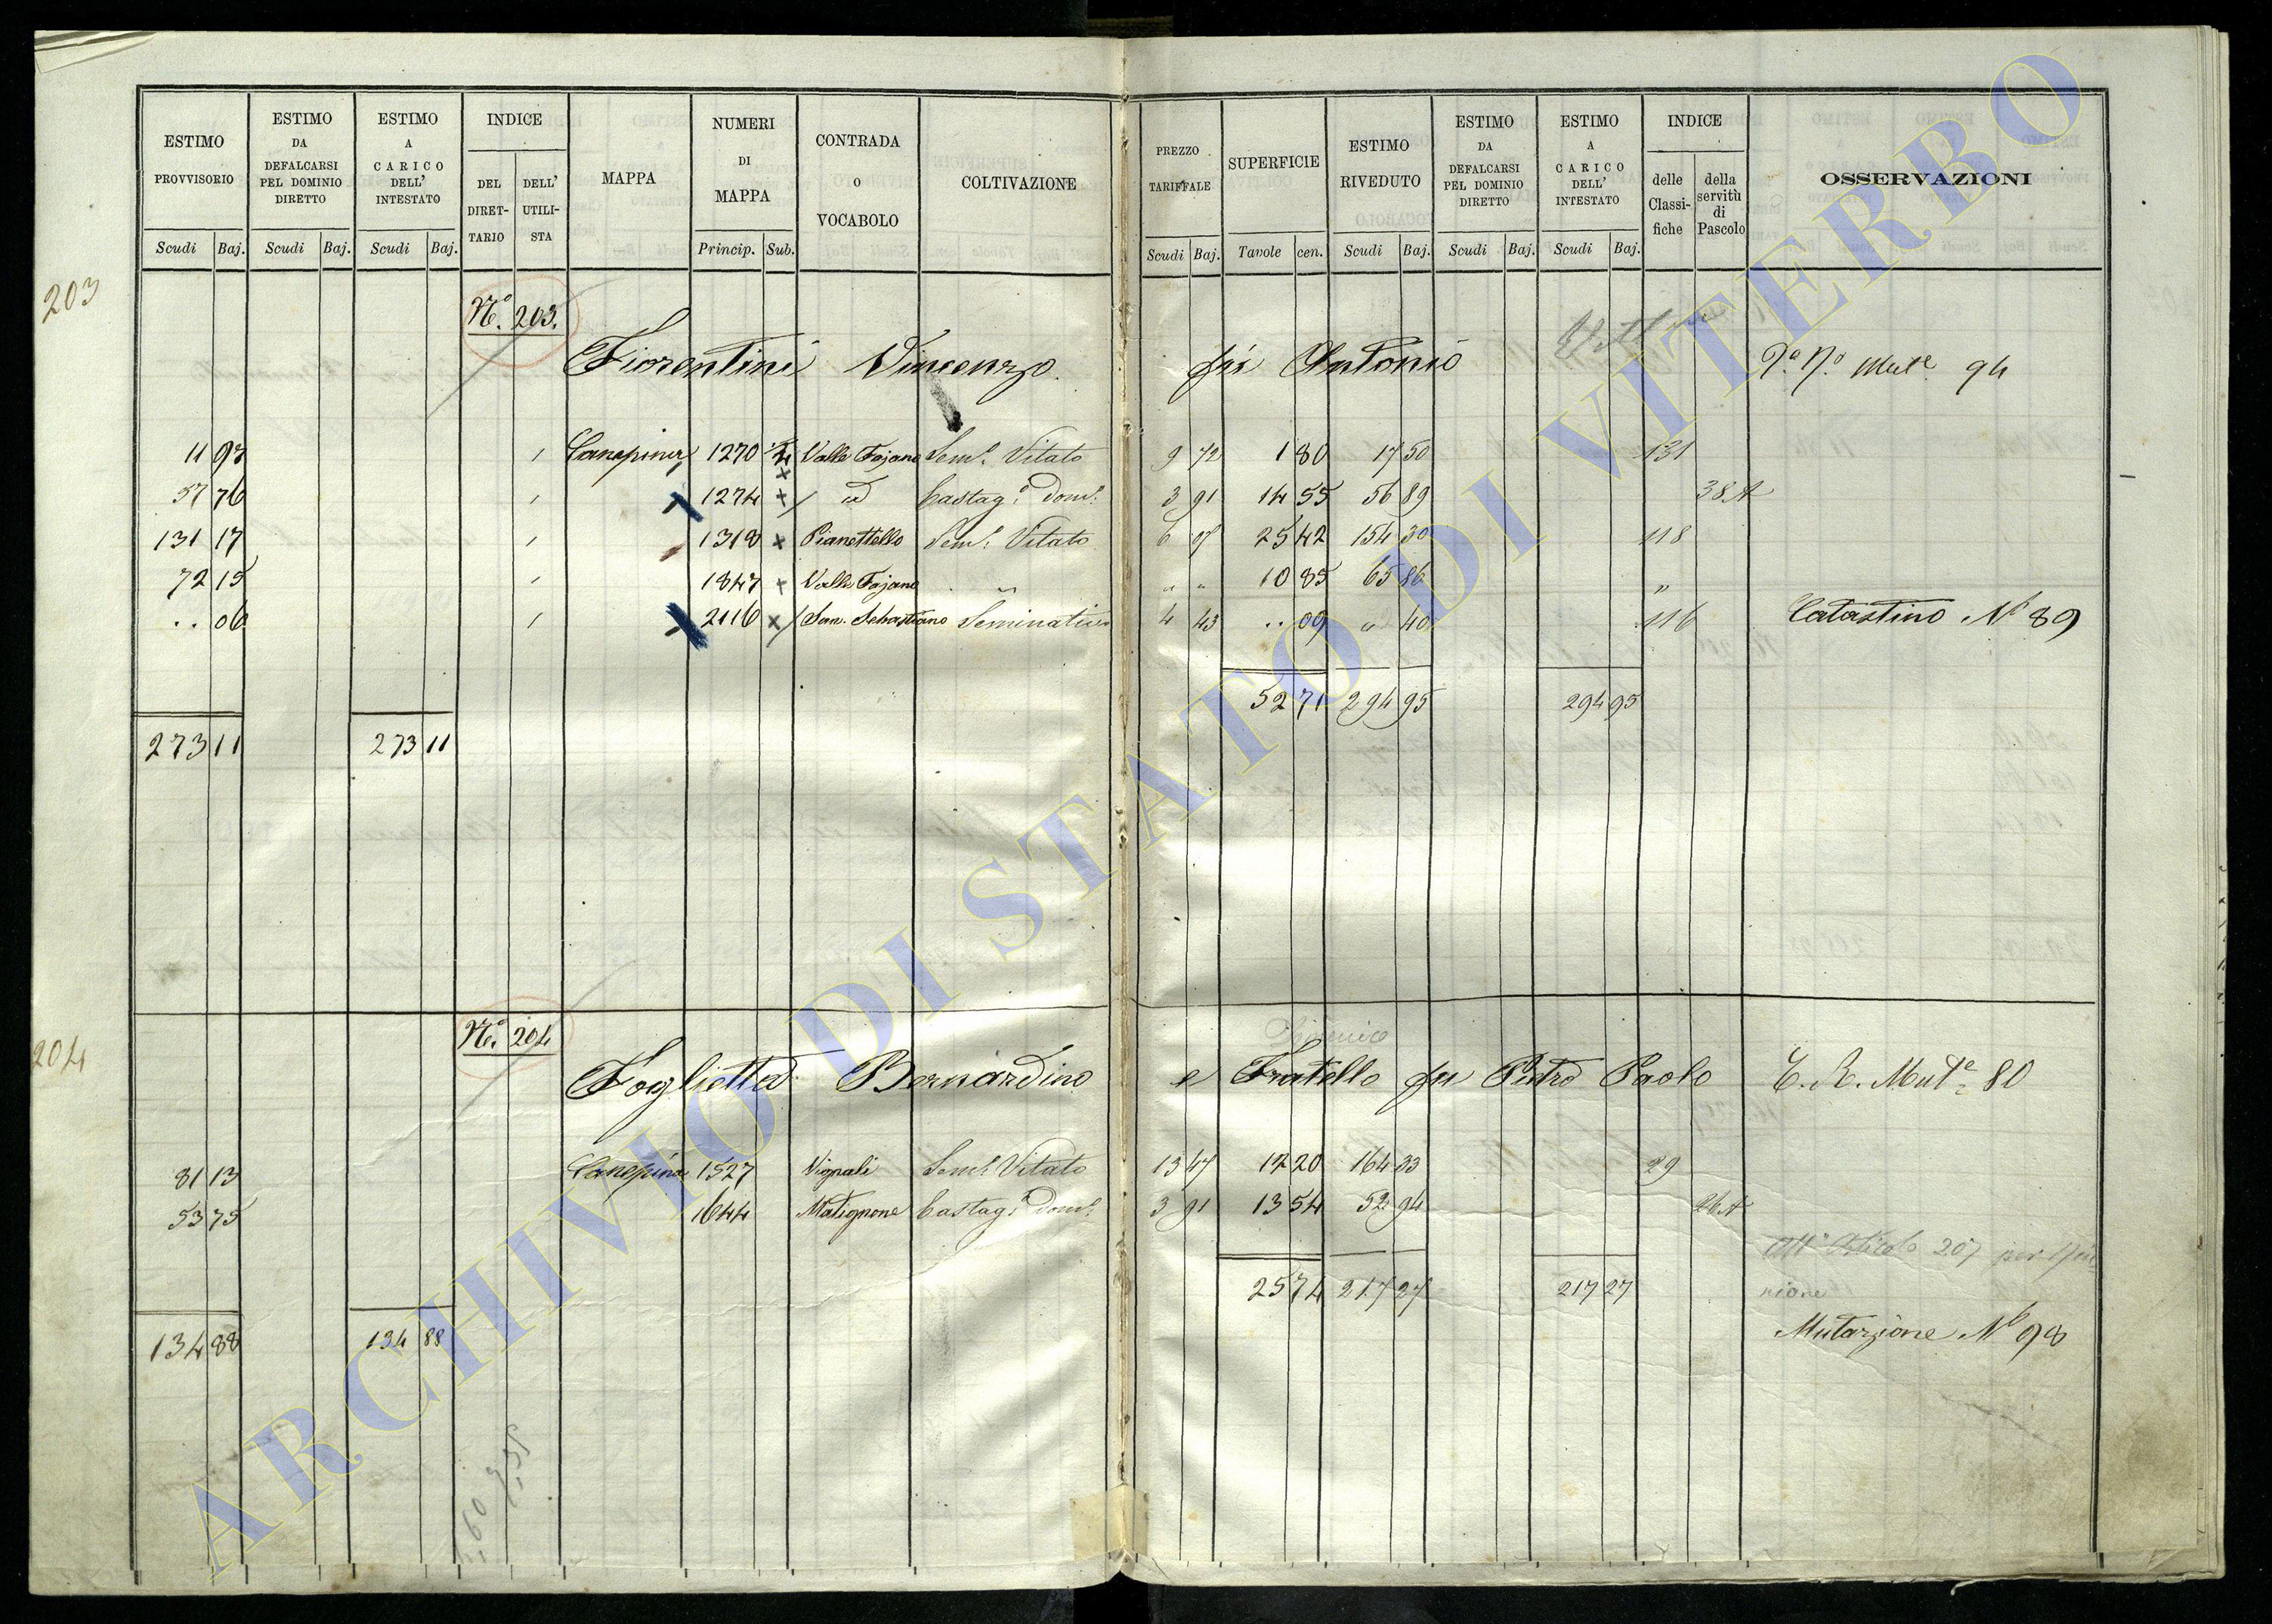 ESTIMO PROVVISORIO
Scudi Baj.
ESTIMO DA DEFALCARSI PEL DOMINIO DIRETTO
Scudi Baj.
ESTIMO A CARICO DELL' INTESTATO
Scudi Baj.
INDICE
DEL DIRET-TARIO
DELL' UTILI-STA
MAPPA
NUMERI DI MAPPA
Princip. Sub.
CONTRADA O VOCABOLO
COLTIVAZIONE
PREZZO TARIFFALE
Scudi Baj.
SUPERFICIE
Tavole cen.
ESTIMO RIVEDUTO
Scudi Baj.
ESTIMO DA DEFALCARSI PEL DOMINIO DIRETTO
Scudi Baj.
ESTIMO A CARICO DELL' INTESTATO
Scudi Baj.
INDICE
delle Classi-fiche
della servitù di Pascolo
OSSERVAZIONI
203
N.º 203.
Fiorentini Vincenzo fu Antonio
Mutª 94
11 97 1 Canepina 1270 Valle Fajano Semº Vitato 9 72 1 80 17 50 131
57 76 1 1274 id Castagº Domº 3 91 14 55 56 89 38 A
131 17 1 1318 Pianettello Semº Vitato 6 07 25 42 154 30 118
72 15 1 1847 Valle Fajano " " 10 85 65 86 "
.. 06 1 2116 San Sebastiano Seminativo 4 43 .. 09 " 40 116 Catastino Nº 89
52 71 294 95 294 95
273 11 273 11
204
N.º 204
Foglietta Bernardino e Fratello fu Pietro Paolo Mutª 80
81 13 Canepina 1527 Vignali Semº Vitato 13 47 12 20 164 33 29
53 75 1644 Matignone Castagº Domº 3 91 13 54 52 94 26 A
All' Articolo 207 per Riu-
nione
25 74 217 27 217 27
Mutazione Nº 98
134 88 134 88
ARCHIVIO DI STATO DI VITERBO